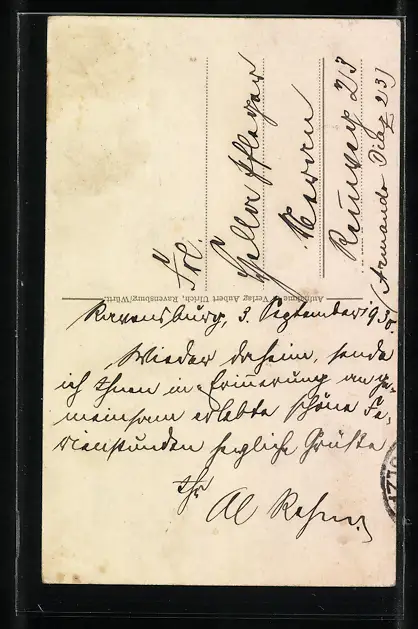 Frl.
Hella Pfleger
Meran
Rennweg 23
(Armando Diaz 23)
Aufnahme u. Verlag Aubert Ulrich, Ravensburg/Württ.
Ravensburg, 3. September 1930
Wieder daheim, sende
ich Ihnen in Erinnerung an ge-
meinsam erlebte schöne Fe-
rienstunden herzliche Grüße
Ihr
Al